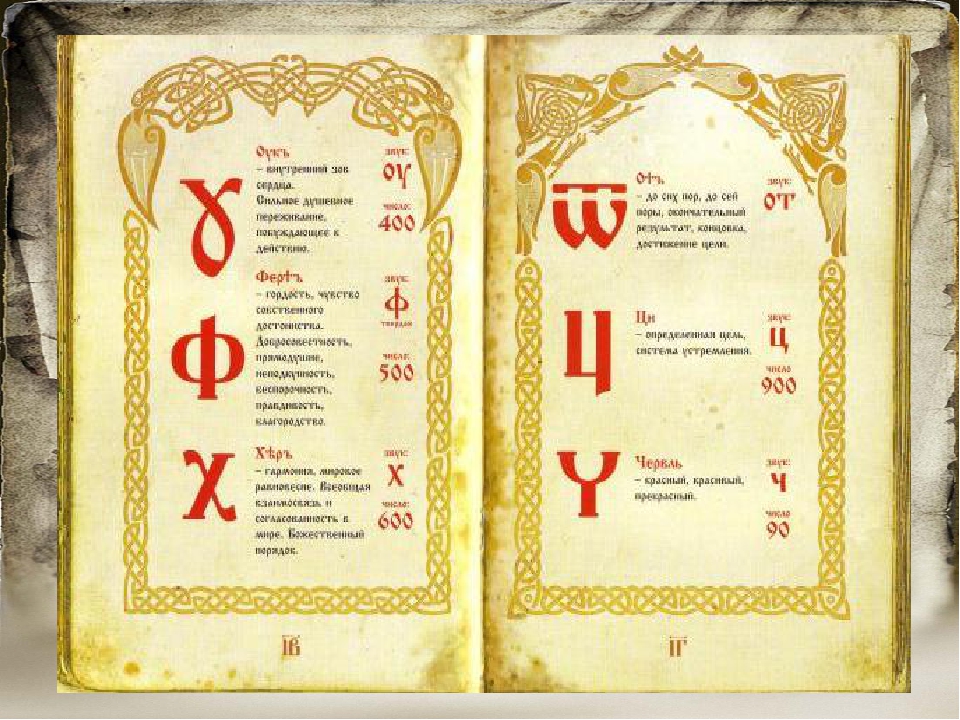 Ꙋ
Оукъ
– внутренний зов
сердца.
Сильное душевное
переживание,
побуждающее к
действию.
звук:
оу
число:
400
Ф
Ферտъ
– гордость, чувство
собственного
достоинства.
Добросовестность,
прямодушие,
неподкупность,
беспорочность,
правдивость,
благородство.
звук:
ф
твердая
число:
500
Х
Хѣръ
– гармония, мировое
равновесие. Всеобщая
взаимосвязь и
согласованность в
мире. Божественный
порядок.
звук:
х
число:
600
І҃В
Ѿ
Отъ
– до сих пор, до сей
поры, окончательный
результат, концовка,
достижение цели.
звук:
от
Ц
Ци
– определенная цель,
система устремления.
звук:
ц
число
900
Ч
Червль
– красный, красивый,
прекрасный.
звук:
ч
число
90
І҃Г